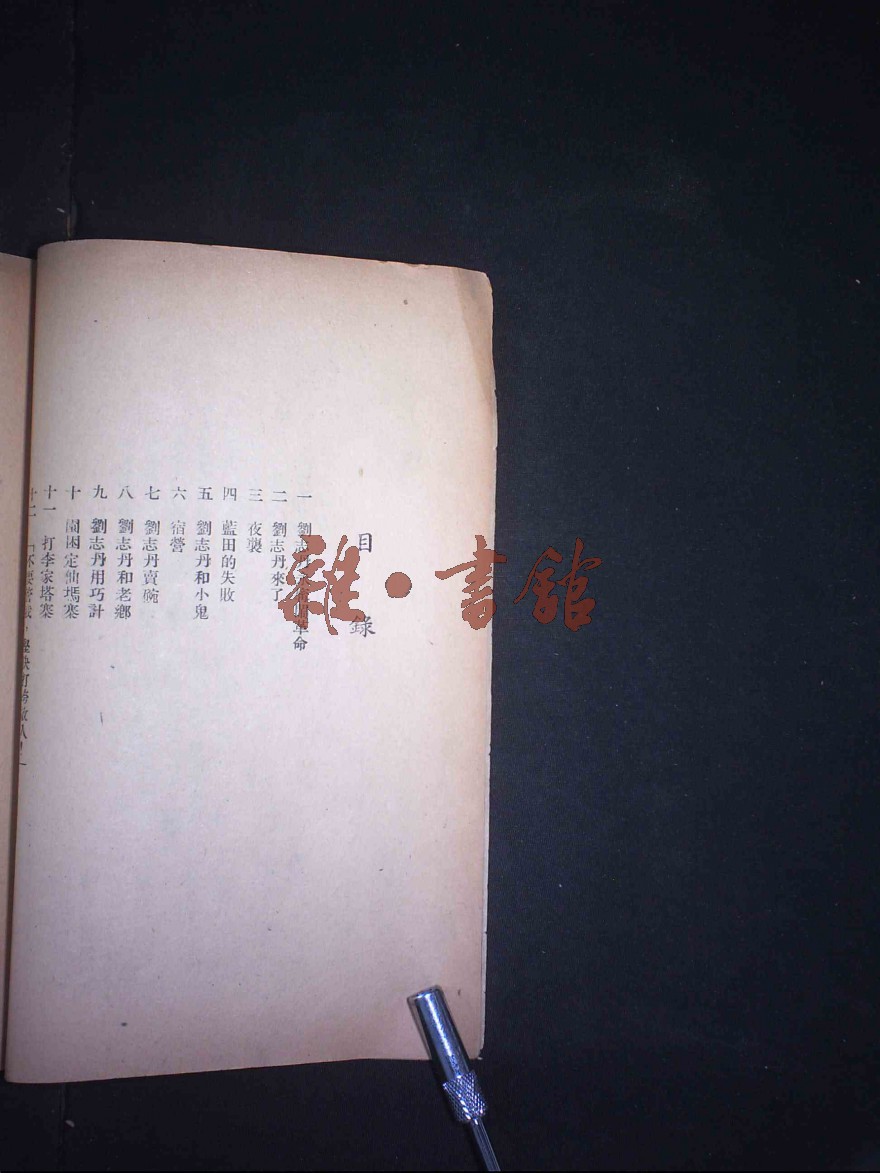 目錄
一 劉志丹 革命
二 劉志丹來了
三 夜襲
四 藍田的失敗
五 劉志丹和小鬼
六 宿營
七 劉志丹賣碗
八 劉志丹和老鄉
九 劉志丹用巧計
十 圍困定仙墕寨
十一 打李家塔寨
十二 「不要管我 堅決打 敵人！」
雜·書館